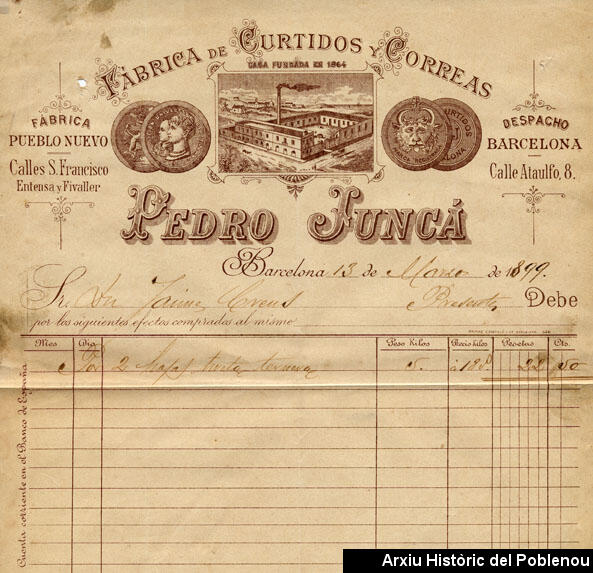 FÁBRICA DE CURTIDOS Y CORREAS
CASA FUNDADA EN 1864
FÁBRICA
PUEBLO NUEVO
Calles S. Francisco
Entensa y Fivaller
DESPACHO
BARCELONA
Calle Ataulfo, 8.
CURTIDOS
PEDRO JUNCÁ
Barcelona 13 de Marzo de 1899.
Sr. Dn Jaime Presente Debe
por los siguientes efectos comprados al mismo
Mes Dia Peso Kilos Precio kilos Pesetas Cts.
Por 2 hojas ternera 5. á 22 50
Cuenta corriente en el Banco de España
Arxiu Històric del Poblenou